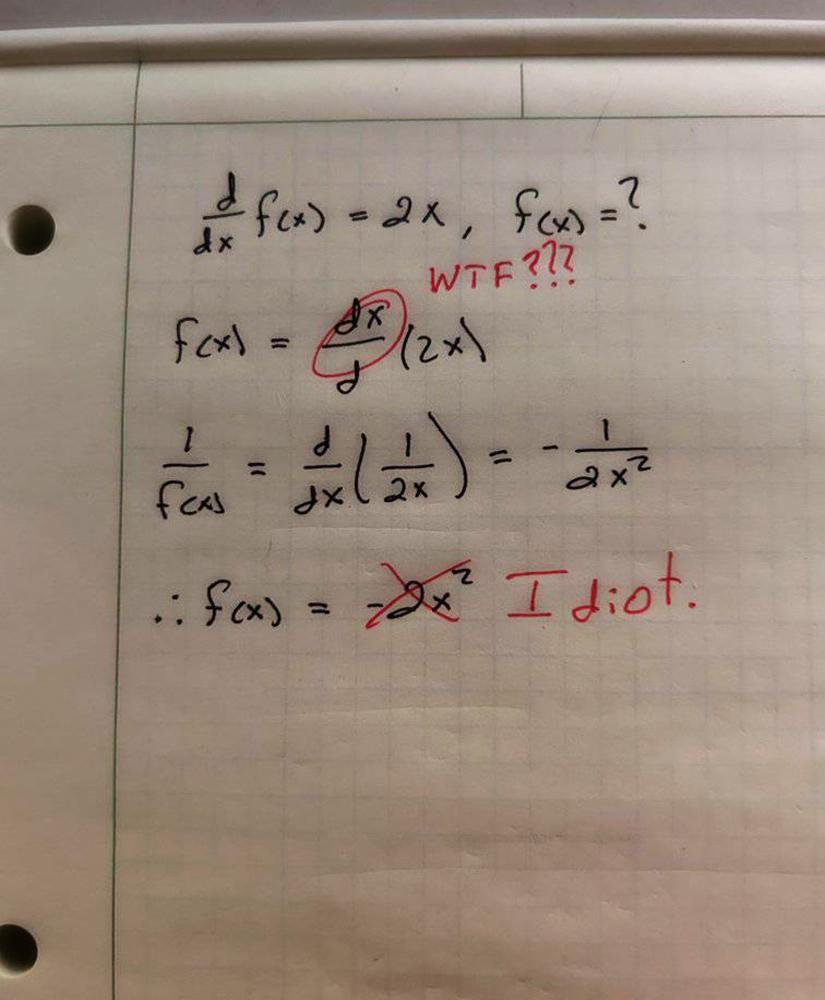 d/dx f(x) = 2x, f(x) = ?
WTF???
f(x) = dx/d (2x)
1/f(x) = d/dx (1/2x) = - 1/2x²
∴ f(x) = -2x² Idiot.